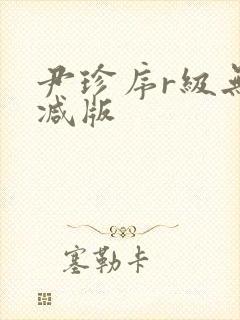 尹珍序r级无
减版
塞勒卡